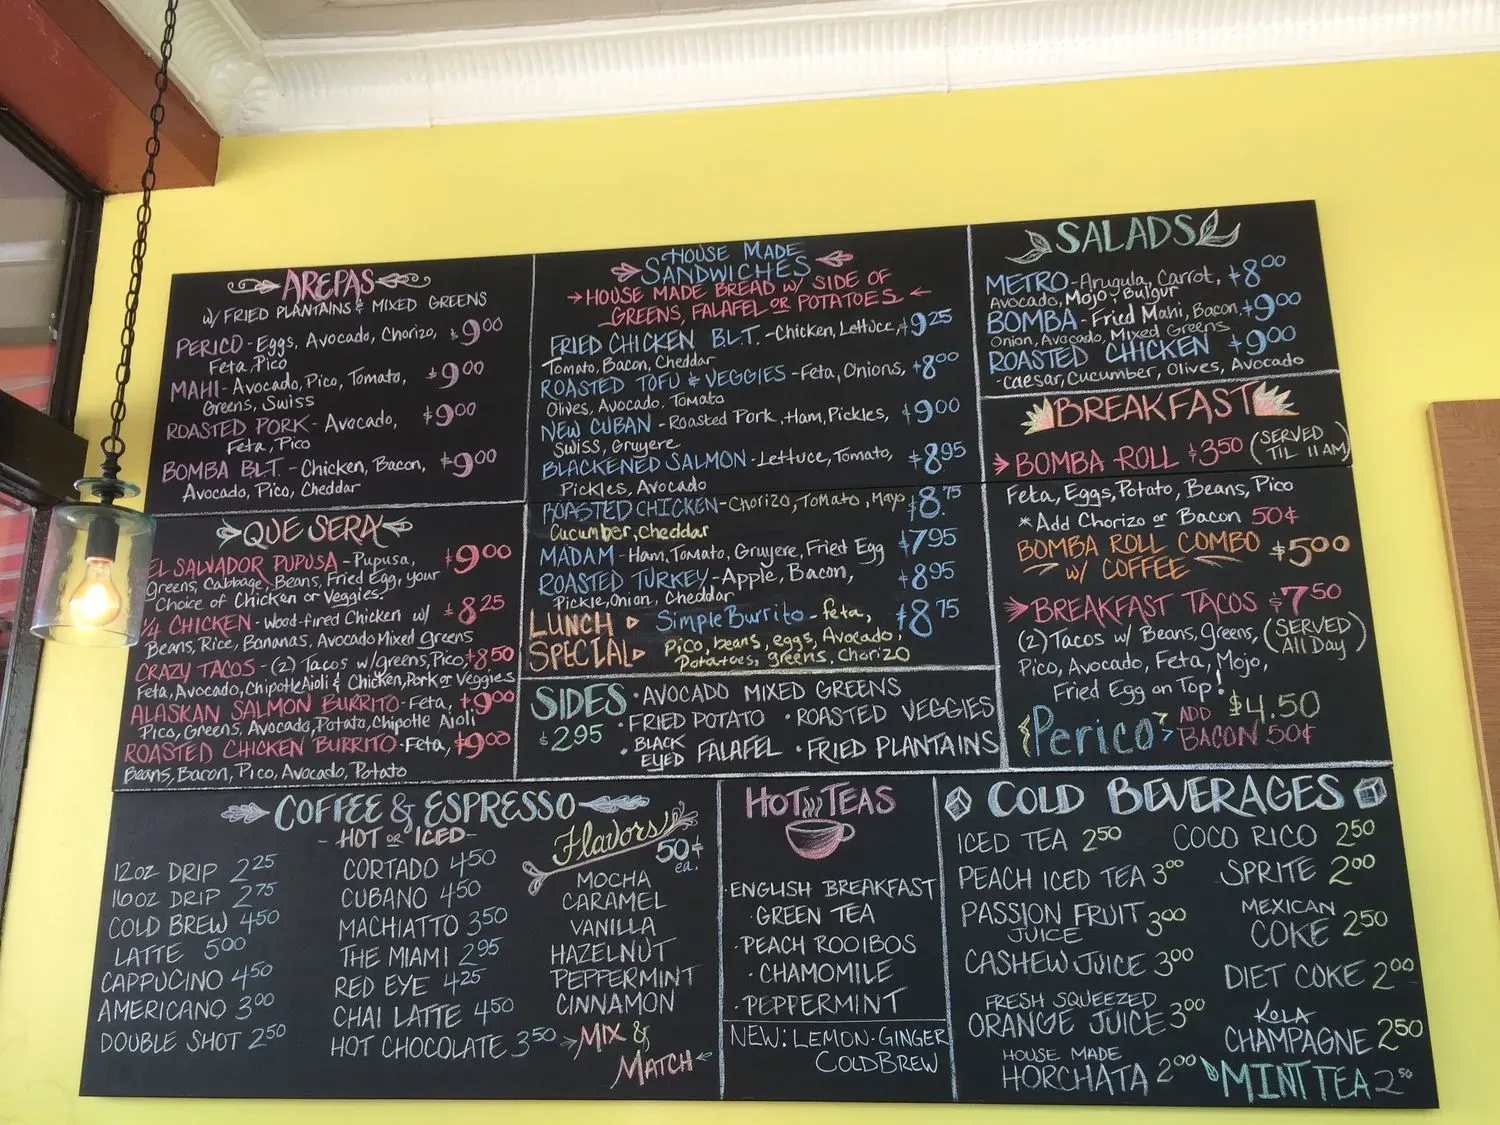 AREPAS
W/ FRIED PLANTAINS & MIXED GREENS
PERICO - Eggs, Avocado, Chorizo, $9.00
Feta, Pico
MAHI - Avocado, Pico, Tomato, $9.00
Greens, Swiss
ROASTED PORK - Avocado, $9.00
Feta, Pico
BOMBA B.L.T. - Chicken, Bacon, $9.00
Avocado, Pico, Cheddar
QUE SERA
EL SALVADOR PUPUSA - Pupusa, $9.00
Greens, Cabbage, Beans, Fried Egg, your
Choice of Chicken or Veggies.
1/4 CHICKEN - Wood-fired Chicken w/ $8.25
Beans, Rice, Bananas, Avocado Mixed Greens
CRAZY TACOS - (2) Tacos w/ greens, Pico, $8.50
Feta, Avocado, Chipotle Aioli & Chicken, Pork or Veggies
ALASKAN SALMON BURRITO - Feta, $9.00
Pico, Greens, Avocado, Potato, Chipotle Aioli
ROASTED CHICKEN BURRITO - Feta, $9.00
Beans, Bacon, Pico, Avocado, Potato
HOUSE MADE
SANDWICHES
HOUSE MADE BREAD W/ SIDE OF
GREENS, FALAFEL OR POTATOES
FRIED CHICKEN B.L.T. - Chicken, Lettuce, $9.25
Tomato, Bacon, Cheddar
ROASTED TOFU & VEGGIES - Feta, Onions, $8.00
Olives, Avocado, Tomato
NEW CUBAN - Roasted Pork, Ham, Pickles, $9.00
Swiss, Gruyere
BLACKENED SALMON - Lettuce, Tomato, $8.95
Pickles, Avocado
ROASTED CHICKEN - Chorizo, Tomato, Mayo $8.75
Cucumber, Cheddar
MADAM - Ham, Tomato, Gruyere, Fried Egg $7.95
ROASTED TURKEY - Apple, Bacon, $8.95
Pickle, Onion, Cheddar
LUNCH SPECIAL Simple Burrito - feta, $8.75
Pico, beans, eggs, Avocado,
Potatoes, greens, Chorizo
SIDES $2.95
· AVOCADO MIXED GREENS
· FRIED POTATO · ROASTED VEGGIES
· BLACK EYED FALAFEL · FRIED PLANTAINS
SALADS
METRO - Arugula, Carrot, $8.00
Avocado, Mojo, Bulgur
BOMBA - Fried Mahi, Bacon, $9.00
Onion, Avocado, Mixed Greens
ROASTED CHICKEN $9.00
- Caesar, Cucumber, Olives, Avocado
BREAKFAST
BOMBA ROLL $3.50 (SERVED TIL 11 AM)
Feta, Eggs, Potato, Beans, Pico
* Add Chorizo or Bacon 50¢
BOMBA ROLL COMBO $5.00
W/ COFFEE
BREAKFAST TACOS $7.50
(2) Tacos w/ Beans, Greens, (SERVED All Day)
Pico, Avocado, Feta, Mojo,
Fried Egg on Top!
Perico $4.50
ADD BACON 50¢
COFFEE & ESPRESSO
- HOT OR ICED -
12oz DRIP 2.25
16oz DRIP 2.75
COLD BREW 4.50
LATTE 5.00
CAPPUCINO 4.50
AMERICANO 3.00
DOUBLE SHOT 2.50
CORTADO 4.50
CUBANO 4.50
MACHIATTO 3.50
THE MIAMI 2.95
RED EYE 4.25
CHAI LATTE 4.50
HOT CHOCOLATE 3.50
Flavors
50¢ ea.
MOCHA
CARAMEL
VANILLA
HAZELNUT
PEPPERMINT
CINNAMON
MIX &
MATCH
HOT TEAS
· ENGLISH BREAKFAST
· GREEN TEA
· PEACH ROOIBOS
· CHAMOMILE
· PEPPERMINT
NEW: LEMON-GINGER
COLDBREW
COLD BEVERAGES
ICED TEA 2.50
PEACH ICED TEA 3.00
PASSION FRUIT 3.00
JUICE
CASHEW JUICE 3.00
FRESH SQUEEZED
ORANGE JUICE 3.00
HOUSE MADE
HORCHATA 2.00
COCO RICO 2.50
SPRITE 2.00
MEXICAN
COKE 2.50
DIET COKE 2.00
KOLA
CHAMPAGNE 2.50
MINT TEA 2.50